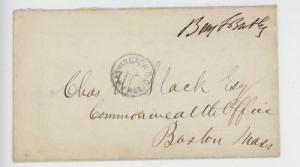 Benj F Butler
WASHINGTON D.C.
Chas Mack Esq
Commonwealth Office
Boston Mass